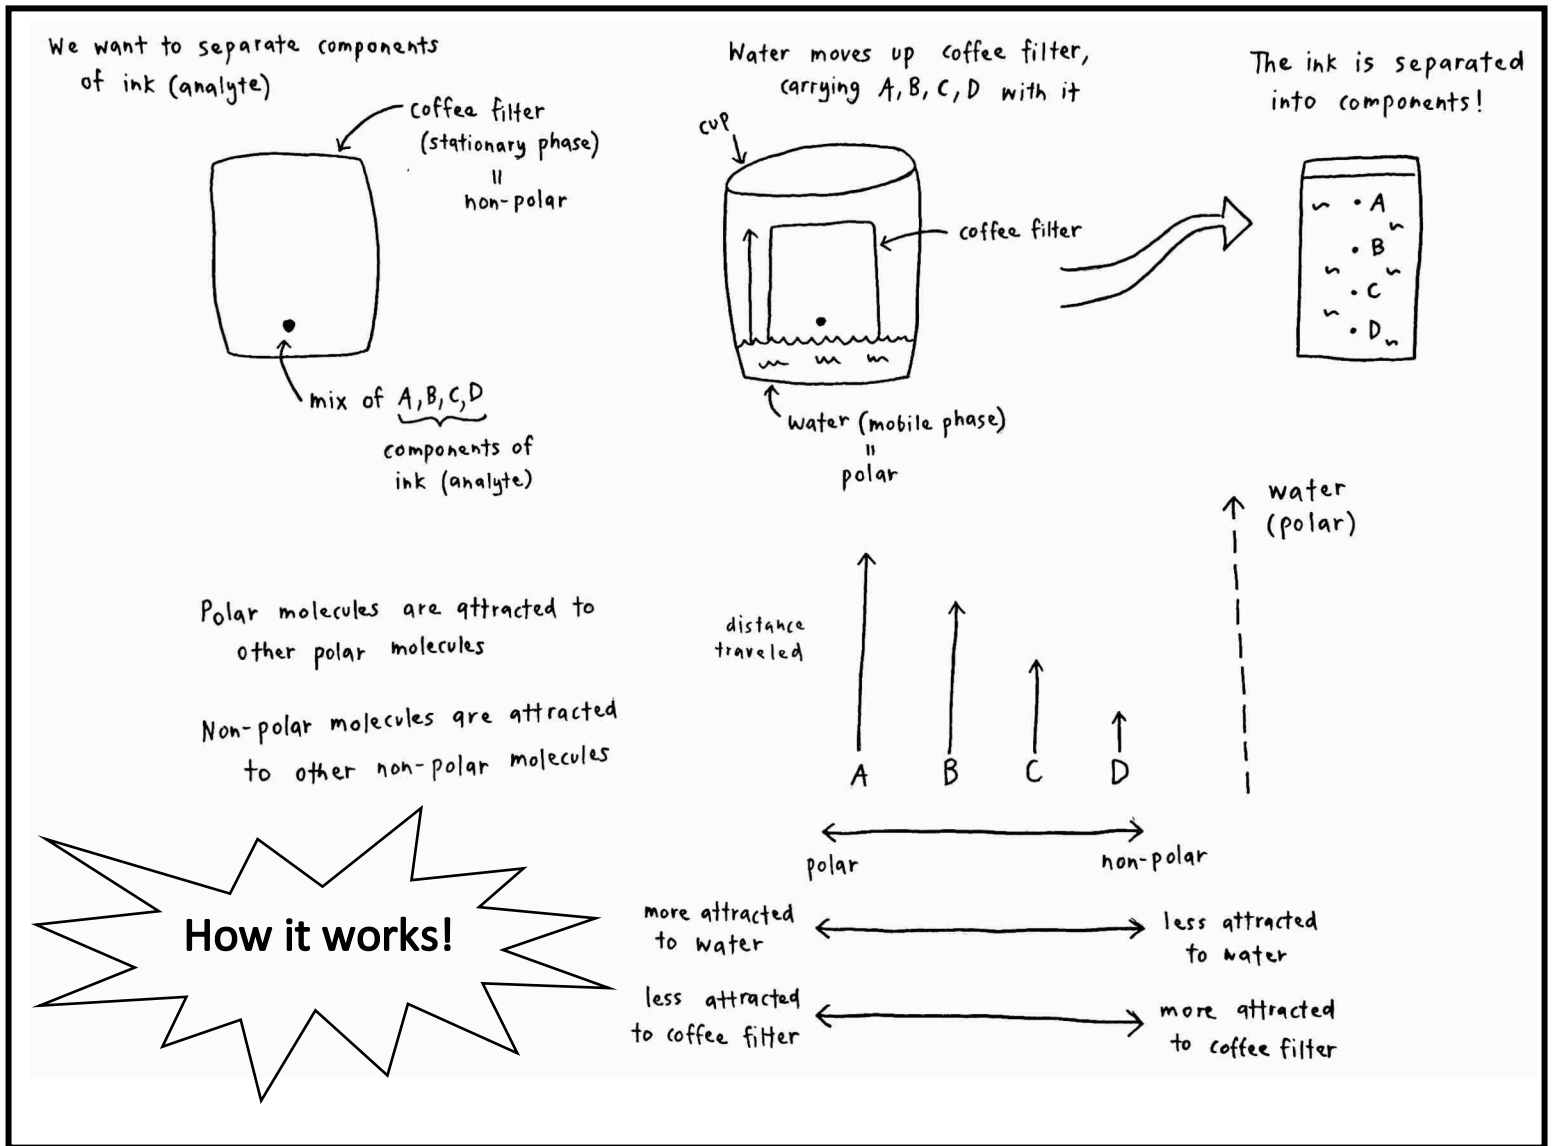 We want to separate components
of ink (analyte)
coffee filter
(stationary phase)
=
non-polar
mix of A, B, C, D
components of
ink (analyte)
Water moves up coffee filter,
carrying A, B, C, D with it
cup
coffee filter
water (mobile phase)
=
polar
The ink is separated
into components!
A
B
C
D
Polar molecules are attracted to
other polar molecules
Non-polar molecules are attracted
to other non-polar molecules
How it works!
distance
traveled
A B C D
water
(polar)
polar non-polar
more attracted
to water
less attracted
to water
less attracted
to coffee filter
more attracted
to coffee filter